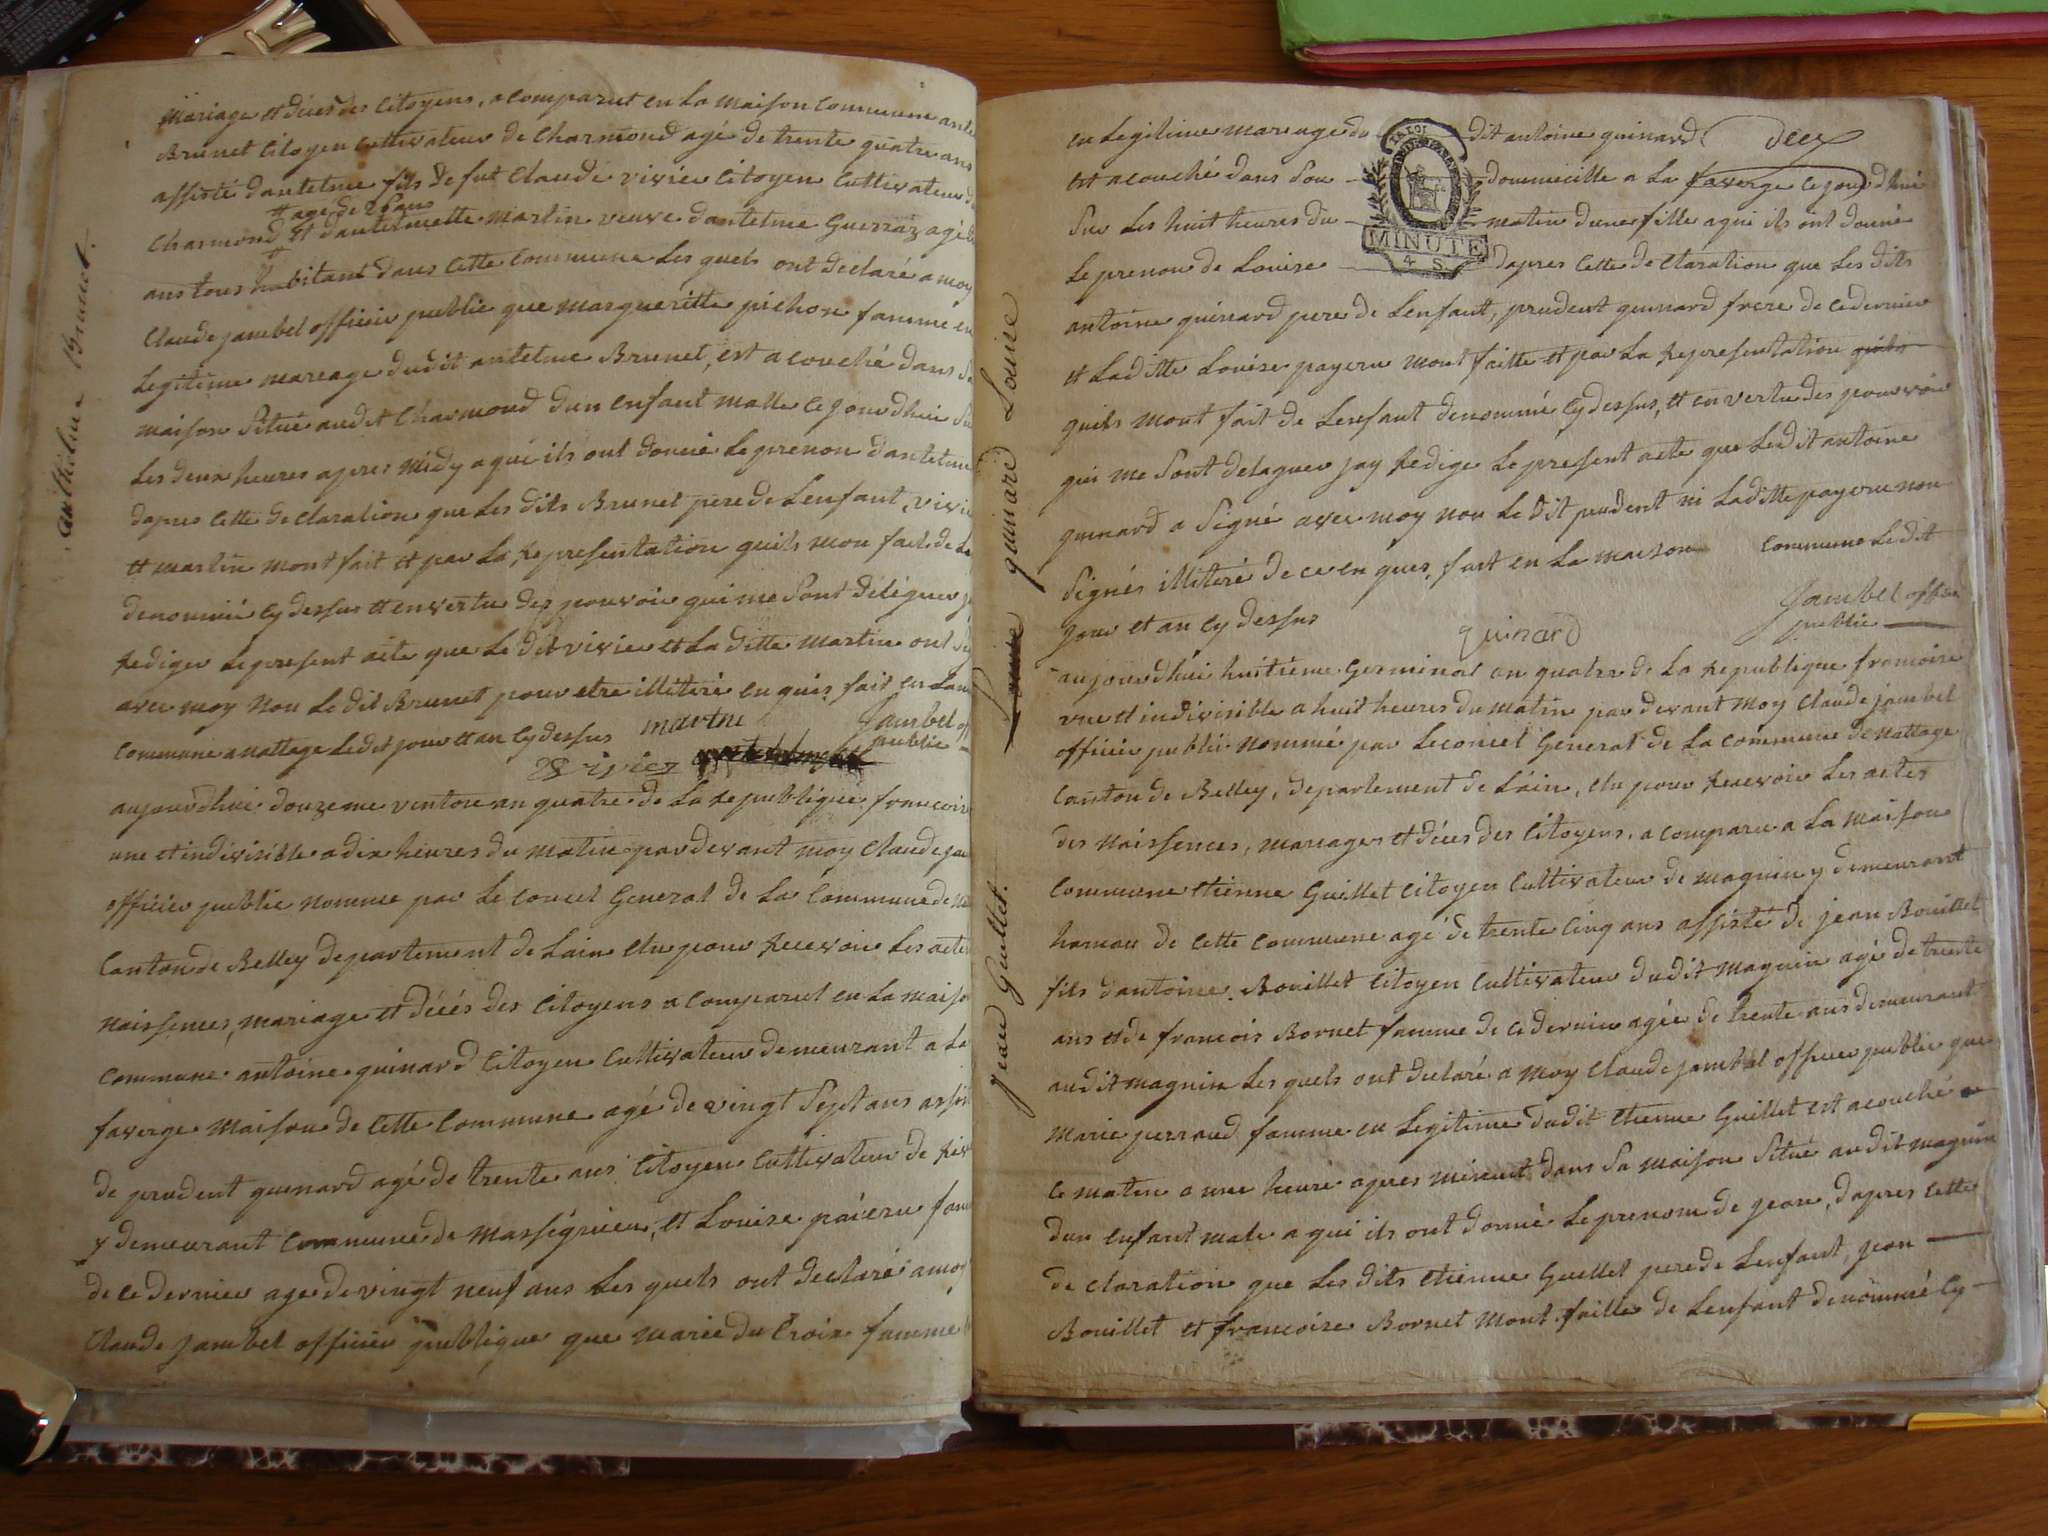 anthelme Brunet.
mariage et décès des citoyens, a comparut en la maison commune ante
Brunet citoyen cultivateur de Charmond agé de trente quatre ans
assisté dantelme fils de fut Claude vivier citoyen cultivateur d
# agé de 26 ans
Charmond # et dantelmette martin veuve dantelme Guerraz agé
ans tous habitant dans cette commune les quels ont declaré a moy
Claude jambel officier publie que margueritte pichon famme en
legitime mareage dudit antelme Brunet, est acouché dans sa
maison situé audit Charmond dun enfant malle ce jourdhui sur
les deux heures apres midy a qui ils ont donné le prenon dantelme
dapres cette declaration que les dits Brunet pere de lenfant, vivie
et martin mont fait et par la representation quils mon fait de le
denommé cy dessus et en vertu des pouvoir qui me sont délégues j
rediger le present acte que le dit vivier et la ditte martin ont si
avec moy non le dit Brunet pour etre illiteré enquis fait en la m
commune a nattage ledit jour et an cy dessus martin jambel off
vivier publie
aujourdhui douzeme ventose an quatre de la republique francoise
une et indivisible a dix heures du matin par devant moy Claude jam
officier publie nomme par le concel General de la commune de na
Canton de Belley departement de lain elu pour recevoir les actes
naissences, mariage et décés des citoyens a comparut en la maiso
commune antoine quinard citoyen cultivateur demeurant a la
faverge maison de cette commune agé de vingt sept ans assis
de prudent quenard agé de trente ans citoyen cultivateur de
y demeurant commune de massignieu, et Louise païeru fam
de ce dernier age de vingt neuf ans les quels ont declaré a moy
Claude jambel officier publique que marie du Croix famme
quinard Louise
en legitime mareage du dit antoine quinard
est acouché dans son doumiecille a la faverge ce jourdhui
sur les huit heures du matin dune fille a qui ils ont donné
le prenon de Louise dapres cette declaration que les dits
antoine quinard pere de lenfant, prudent quinard frere de ce dernier
et laditte Louise payeru mont faitte et par la representation quils
quils mont fait de lenfant denommé cy dessus, et en vertu des pouvoir
qui me sont delaguer jay redige le present acte que ledit antoine
quenard a signé avec moy non le dit prudent ni laditte payeru non
signés illiteré de ce en ques, fait en la maison commune le dit
jour et an cy dessus quinard jambel officier
publie
LA LOI
MINUTE
4 S
jean Guillet.
aujourdhui huitieme Germinal an quatre de la republique francoise
une et indivisible a huit heures du matin par devant moy Claude jambel
officier publie nommé par le concel General de la commune de nattage
canton de Belley, departement de lain, elu pour recevoir les actes
des naissences, mareages et décés des citoyens, a comparu a la maison
commune etienne Guillet citoyen cultivateur de magnin y demeurant
hameau de cette commune agé de trente cinq ans assisté de jean Bouillet
fils dantoine Bouillet citoyen cultivateur dudit magnin agé de trente
ans et de francois Bornet famme de ce dernier agée de trente ans demeurant
audit magnin les quels ont declaré a moy Claude jambel officier publie que
marie perraud famme en legitime dudit etienne Guillet est acouché
ce matin a une heure apres minuit dans sa maison situé audit magnin
dun enfant male a qui ils ont donné le prenom de jean, dapres cette
declaration que les dits etienne Guillet pere de lenfant, jean
Bouillet et francoise Bornet mont faitte de lenfant denommé cy